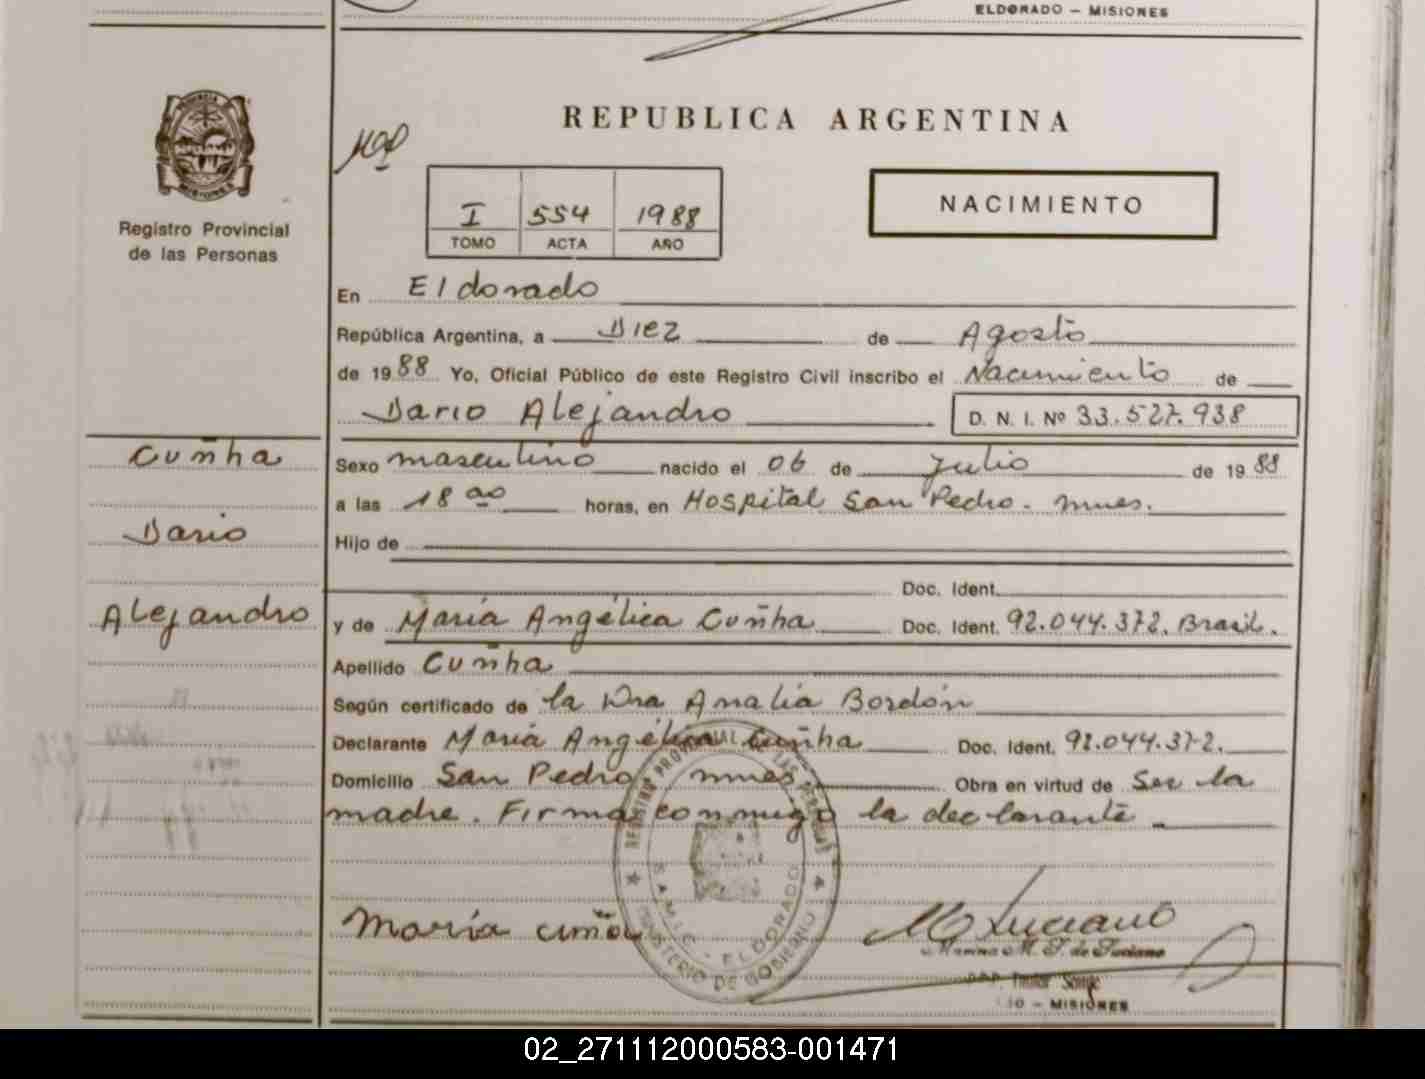 ELDORADO — MISIONES
PROVINCIA DE
MISIONES
Registro Provincial
de las Personas
REPUBLICA ARGENTINA
NACIMIENTO
I 554 1988
TOMO ACTA AÑO
En Eldorado
República Argentina, a Diez de Agosto
de 1988 Yo, Oficial Público de este Registro Civil inscribo el Nacimiento de
Dario Alejandro D. N. I. Nº 33.527.938
Cuñha
Dario
Alejandro
Sexo masculino nacido el 06 de Julio de 1988
a las 18 00 horas, en Hospital San Pedro. mnes.
Hijo de
Doc. Ident.
y de María Angélica Cuñha Doc. Ident. 92.044.372. Brasil.
Apellido Cuñha
Según certificado de la Dra Analía Bordón
Declarante María Angélica Cuñha Doc. Ident. 92.044.372.
Domicilio San Pedro mnes Obra en virtud de Ser la
madre. Firma conmigo la declarante
REGISTRO PROVINCIAL DE LAS PERSONAS
S.A.M.I.C. - ELDORADO
MINISTERIO DE GOBIERNO
María cuña
M Luciano
Marina M. F. de Luciano
Titular
MISIONES
02_271112000583-001471